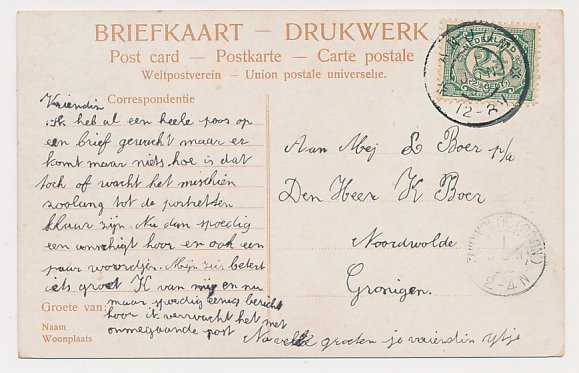 BRIEFKAART – DRUKWERK
Post card – Postkarte – Carte postale
Weltpostverein – Union postale universelle.
Correspondentie
Vriendin
ik heb al een heele poos op
een brief gewacht maar er
komt maar niets. hoe is dat
toch of wacht het mischien
zoolang tot de portretten
klaar zijn. Nu dan spoedig
een hoor en ook een
paar woordjes. Mijn zus betert
iets groet K van mij en nu
Groete van: maar spoedig eens bericht
hoor ik verwacht het met
ommegaande post
Naam
Woonplaats
Na groeten je vriendin
Aan Mej L Boer p/a
Den Heer K Boer
Noordwolde
Gronigen.
NEDERLAND
2½
12-8V
NOORDWOLDE (GRON.)
3-4N